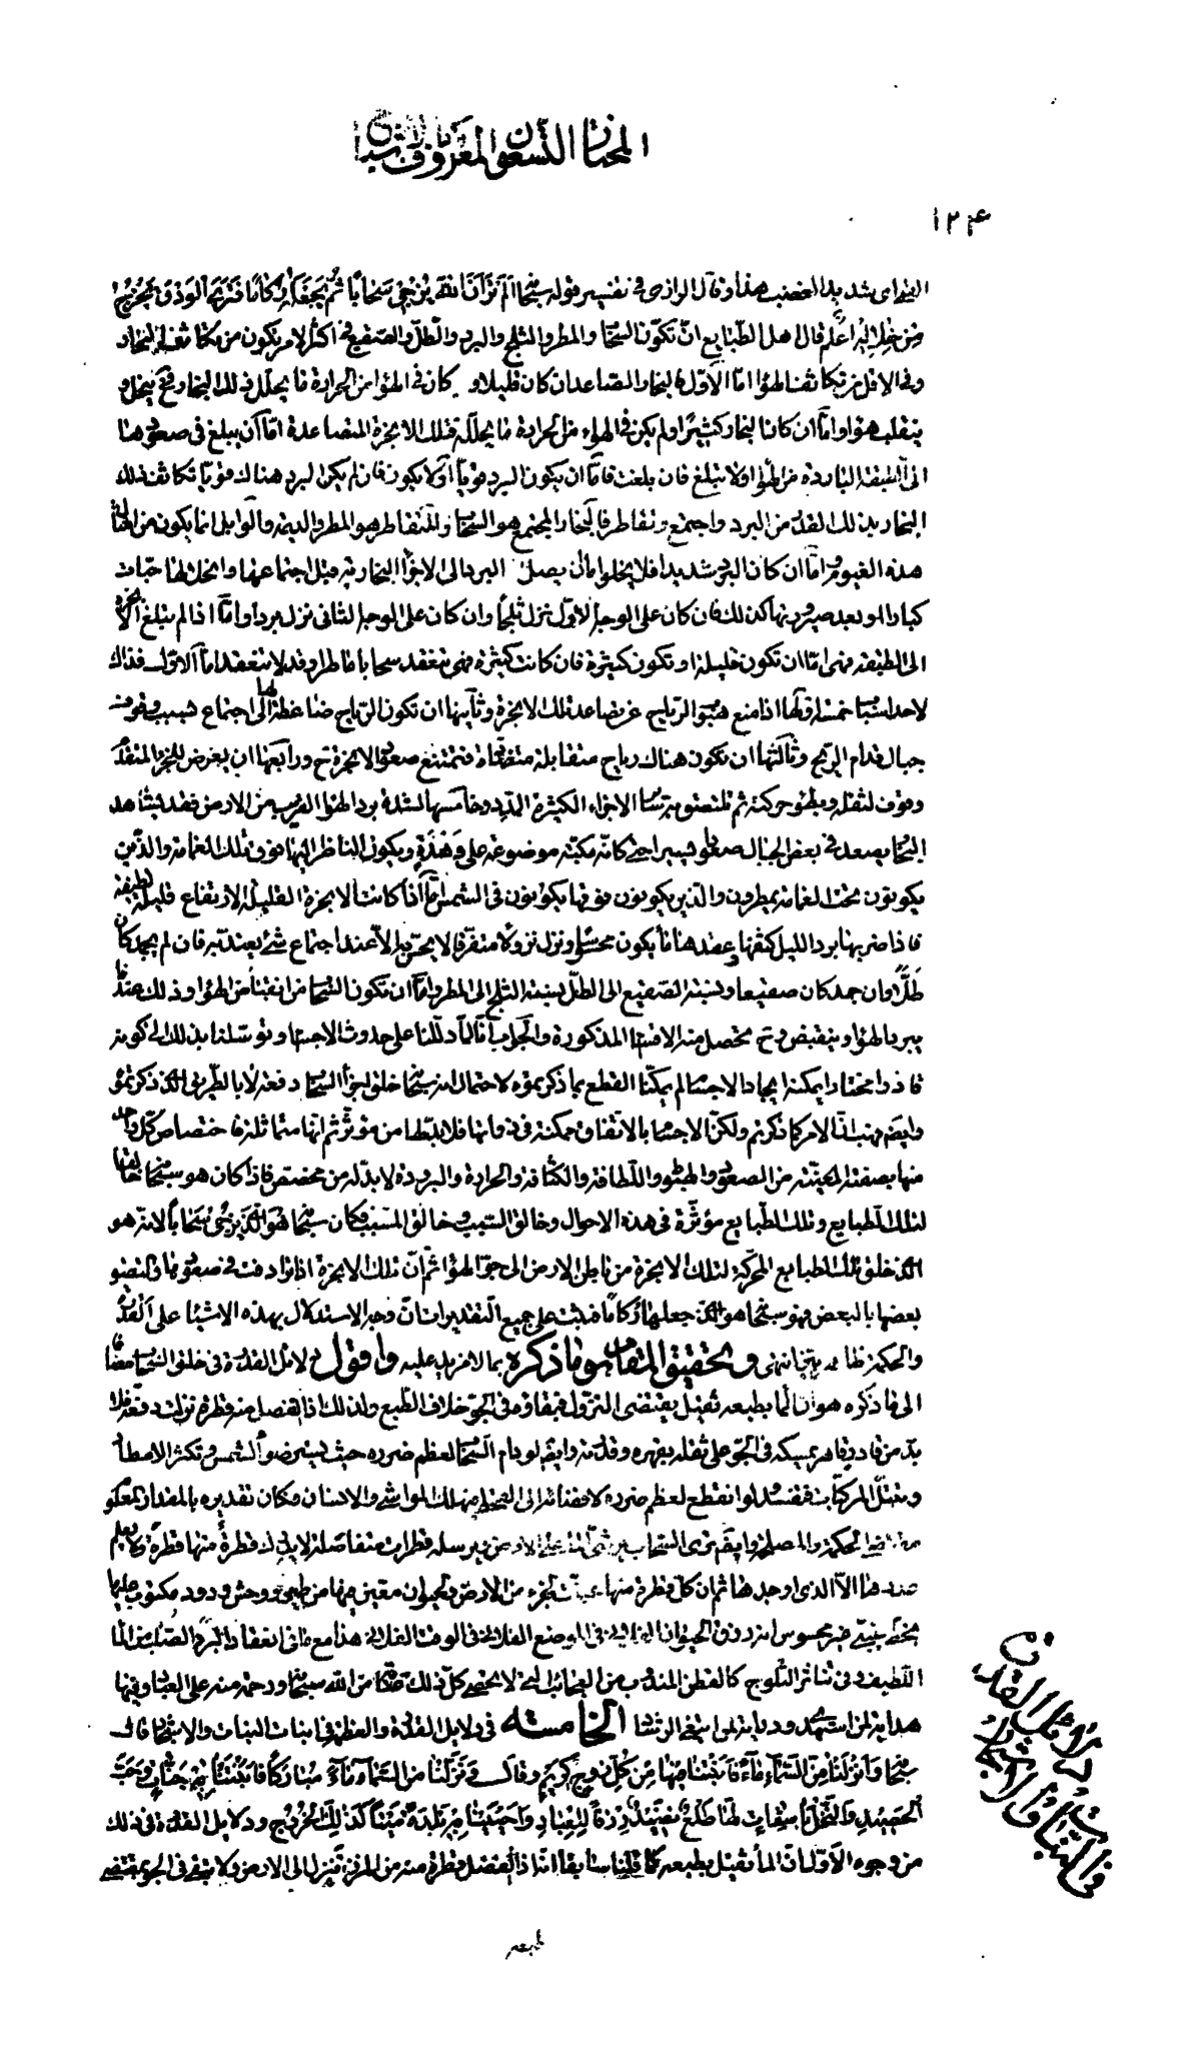 المختار التسعون المعروف بالاشباح
١٢٤
اى شديد الغضب هذا وقال الرازى فى تفسير قوله سبحا الم تر ان الله يزجى سحابا ثم يجعله ركاما فترى الودق يخرج
من خلاله اعلم قال اهل الطبايع ان تكون السحا والمطر والثلج والبرد والطل والصقيع فى اكثر الامر يكون من تكاثف البخار
وفى الاقل من تكاثف الهوا اما الاول فالبخار الصاعد ان كان قليلا و كان فى الهوا من الحرارة ما يحلل ذلك البخار فح ينحل و
ينقلب هوا واما ان كان البخار كثيرا ولم يكن فى الهواء من الحرارة ما يحلله فتلك الابخرة المتصاعدة اما ان يبلغ فى صعودها
الى الطبقة الباردة من الهوا او لا تبلغ فان بلغت فاما ان يكون البرد قويا او لا يكون فان لم يكن البرد هناك قويا تكاثف ذلك
البخار بذلك القدر من البرد واجتمع وتقاطر فالبخار المجتمع هو السحا والمتقاطر هو المطر والديمة والوابل انما يكون من امثال
هذه الغيوم واما ان كان البرد شديدا فلا يخلو اما ان يصل البرد الى الاجزا البخارية قبل اجتماعها وانحلالها حبات
كبارا او بعد صيرورتها كذلك فان كان على الوجه الاول نزل ثلجا وان كان على الوجه الثانى نزل بردا واما اذا لم تبلغ الابخرة
الى الطبقة فهى اما ان تكون قليلة او تكون كثيرة فان كانت كثيرة فهى تنعقد سحابا ماطرا وقد لا تنعقد اما الاول فذاك
لاحد اسبا خمسة اولها اذا منع هبو الرياح عن تصاعد تلك الابخرة وثانيها ان تكون الرياح ضاغطة لها الى اجتماع بسبب وقوف
جبال قدام الريح وثالثها ان تكون هناك رياح متقابلة متصادمة فتمتنع صعو الابخرة ح ورابعها ان يعرض للجزء المتقدم
وقوف لثقله وبطؤ حركته ثم تلتصق به سا الاجزاء الكثيرة المدد وخامسها لشدة برد الهوا القريب من الارض فقد نشاهد
البخا يصعد فى بعض الجبال صعودا يسيرا حتى كانه مكبة موضوعة على وهدة ويكون الناظر اليها فوق تلك الغمامة والذين
يكونون تحت الغمامة يمطرون والذين يكونون فوقها يكونون فى الشمس اما اذا كانت الابخرة القليلة الارتفاع قليلة لطيفة
فاذا ضربها برد الليل كثفها وعقدها ما يكون محسوسا ونزل نزولا متفرقا لا يحس به الا عند اجتماع شئ يعتد به فان لم يجمد كان
طلا وان جمد كان صقيعا ونسبة الصقيع الى الطل نسبة الثلج الى المطر واما ان تكون السحا من انقبا الهوا وذلك عند ما
يبرد الهوا وينقبض وح تحصل منه الاقسا المذكورة والجواب انا لما دللنا على حدوث الاجسا وتوسلنا بذلك الى كونه
قادرا مختارا يمكنه ايجاد الاجسا لم يمكنا القطع بما ذكرتموه لاحتمال انه سبحا خلق اجزا السحا دفعة لا بالطريق الذى ذكرتموه
وايضا فهب ان الامر كما ذكرتم ولكن الاجسا بالاتفاق ممكنة فى ذواتها فلا بد لها من مؤثر ثم انها متماثلة فاختصاص كل واحد
منها بصفته المعينة من الصعو والهبو واللطافة والكثافة والحرارة والبرودة لا بد له من مخصص فاذا كان هو سبحا خالقا
لتلك الطبايع وتلك الطبايع مؤثرة فى هذه الاحوال وخالق السبب خالق المسبب فكان سبحا هو الذى يزجى سحابا لانه هو
الذى خلق تلك الطبايع المحركة لتلك الابخرة من باطن الارض الى جو الهوا ثم ان تلك الابخرة اذا ترادفت فى صعودها والتصق
بعضها بالبعض فهو سبحا هو الذى جعلها ركاما فثبت على جميع التقديرات ان وجه الاستدلال بهذه الاشيا على القدرة
والحكمة ظاهر بين انتهى وتحقيق المقام هو ما ذكره بما لا مزيد عليه واقول دلائل القدرة فى خلق السحا مضافا
الى ما ذكره هو ان الما بطبعه ثقيل يقتضى النزول فبقاؤه فى الجو خلاف الطبع ولذلك اذا انفصل منه قطرة نزلت دفعة فلا
بد من قادر قاهر يمسكه فى الجو على ثقله بقهره وقدرته وايضا لو دام السحا لعظم ضرره حيث يستر ضو الشمس وتكثر الامطا
وتبتل المركبات فتفسد ولو انقطع لعظم ضرره لافضائه الى القحط فيهلك المواشى والانسان فكان تقديره بالمقدار المعلو
مقتضى الحكمة والمصلحة وايضا ترى السحاب يرش الماء على الارض ويرسله قطرات متفاصلة لا يدرك قطرة منها قطرة ولا يعلم
عددها الا الذى اوجدها ثم ان كل قطرة منها عينت لجزء من الارض ولحيوان معين فيها من طير ووحش ودود مكتوب عليها
بخط غيبى غير محسوس انه رزق الحيوان الفلانى فى الموضع الفلانى فى الوقت الفلانى هذا مع ما فى انعقاد البرد الصلب من الما
اللطيف وفى تناثر الثلوج كالقطن المندوف من العجائب التى لا تحصى كل ذلك من الله سبحا ورحمة منه على العباد وفيها
هداية لمن استهدى ودراية لمن ابتغى الرشا الخامسة فى دلايل القدرة والعظمة فى انبات النبات والاشجا قال
سبحا وانزلنا من السماء ماء فانبتنا فيها من كل زوج كريم وقال ونزلنا من السماء ماء مباركا فانبتنا به جنات وحب
الحصيد والنخل باسقات لها طلع نضيد رزقا للعباد واحيينا به بلدة ميتا كذلك الخروج ودلايل القدرة فى ذلك
من وجوه الاول ان الما ثقيل بطبعه كما قلنا سابقا انه اذا انفصل قطرة منه من المزن تنزل الى الارض ولا تبقى فى الجو بمقتضى
طبعه
دلائل القدرة
فى النبات والاشجار